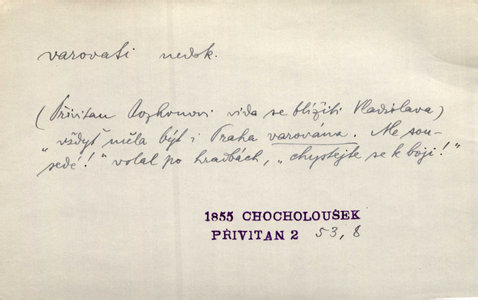 varovati nedok.
(Přivitan Rozhoňovi vida se blížiti Vladislava)
"vždyť měla být i Praha varována. Ale sou-
sedé!" volal po hradbách, "chystejte se k boji!"
1855 CHOCHOLOUŠEK
PŘIVITAN 2 53,8